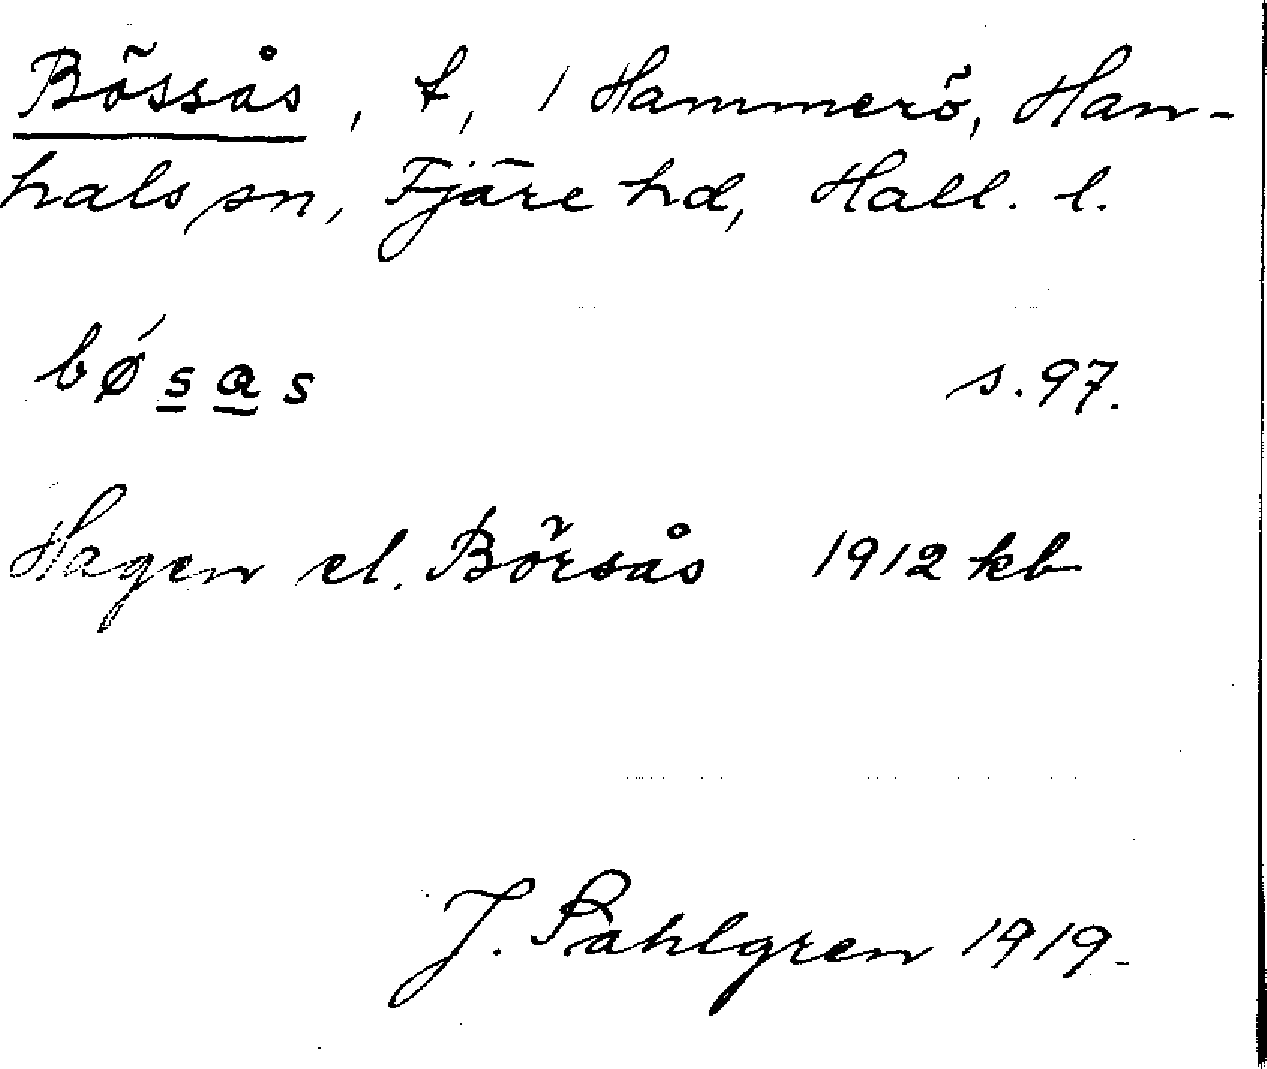 Bössås, t, 1 Hammerö, Han-
hals sn, Fjäre hd, Hall. l.
bǿsas s. 97.
Hagen el. Börsås 1912 kb
J. Sahlgren 1919.